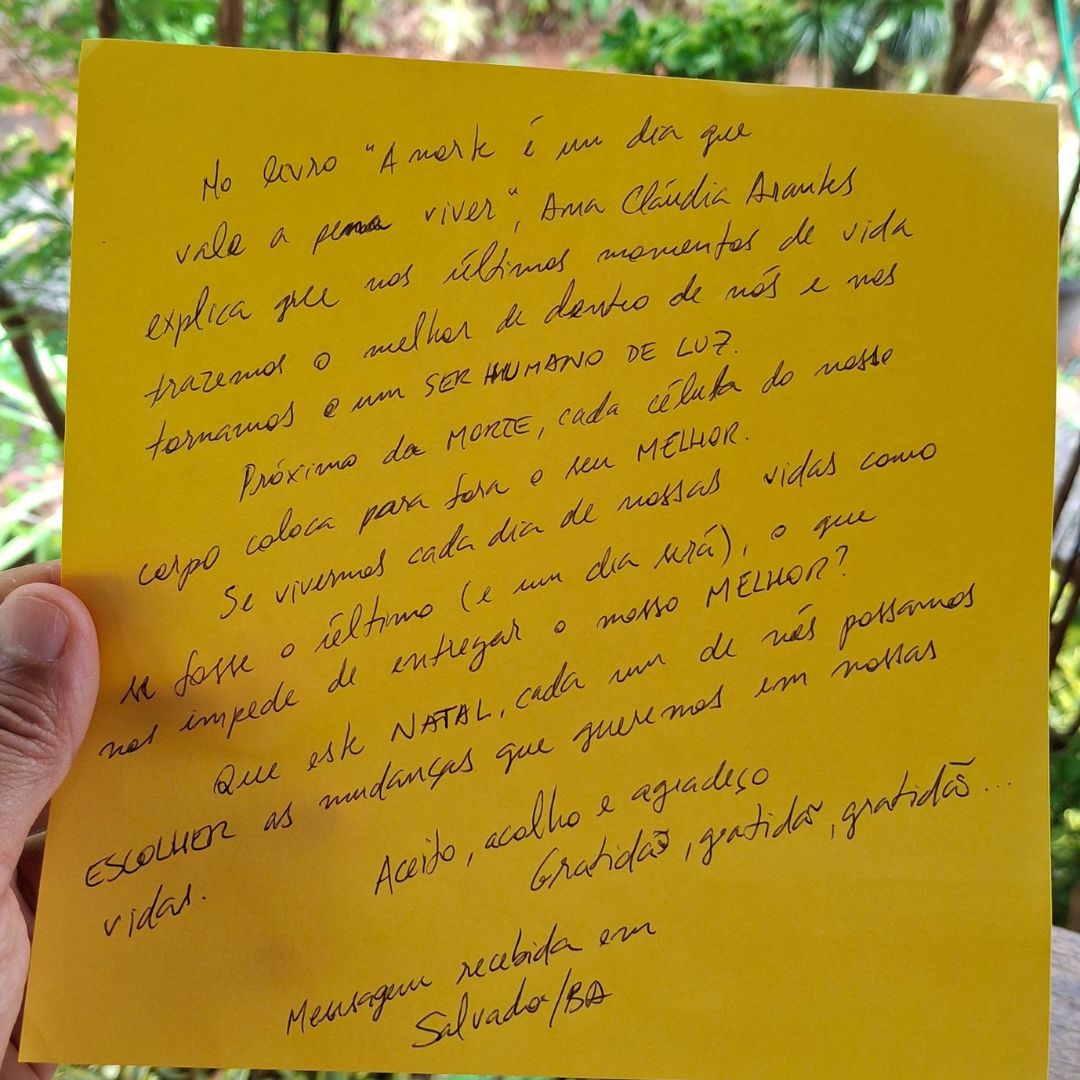 No livro "A morte é um dia que
vale a pena viver", Ana Cláudia Arantes
explica que nos últimos momentos de vida
trazemos o melhor de dentro de nós e nos
tornamos e um SER HUMANO DE LUZ.
Próximo da MORTE, cada célula do nosso
corpo coloca para fora o seu MELHOR.
Se vivermos cada dia de nossas vidas como
se fosse o último (e um dia será), o que
nos impede de entregar o nosso MELHOR?
Que este NATAL, cada um de nós possamos
ESCOLHER as mudanças que queremos em nossas
vidas.
Aceito, acolho e agradeço
Gratidão, gratidão, gratidão...
Mensagem recebida em
Salvador/BA